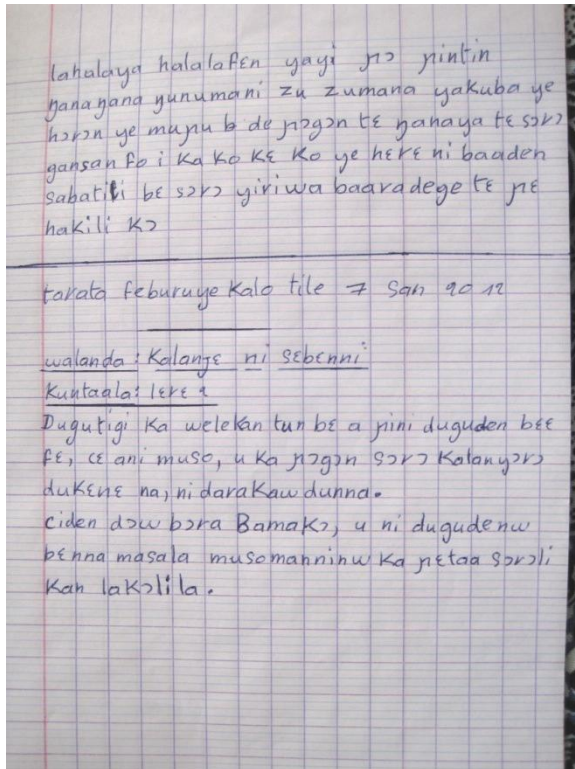 lahalaya halalafɛn yayi ɲɔ ɲintin
ŋanaŋana ŋunumani zu zumana yakuba ye
hɔrɔn ye muɲu b de ɲɔgɔn tɛ ŋanaya tɛ sɔrɔ
gansan fo i ka ko kɛ ko ye hɛrɛ ni baaden
sabatili bɛ sɔrɔ yiriwa baaradege tɛ ɲɛ
hakili kɔ
tarata feburuye kalo tile 7 san 2012
walanda : kalanjɛ ni sɛbɛnni
kuntaala : lɛrɛ 1
Dugutigi ka welekan tun bɛ a ɲini duguden bɛɛ
fɛ, cɛ ani muso, u ka ɲɔgɔn sɔrɔ kalanyɔrɔ
dukɛnɛ na, ni darakaw dunna.
ciden dɔw bɔra Bamakɔ, u ni dugudenw
bɛnna masala musomanninw ka ɲɛtaa sɔrɔli
kan lakɔlila.